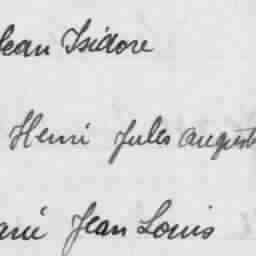 Jean Isidore
Henri Jules August
Jean Louis